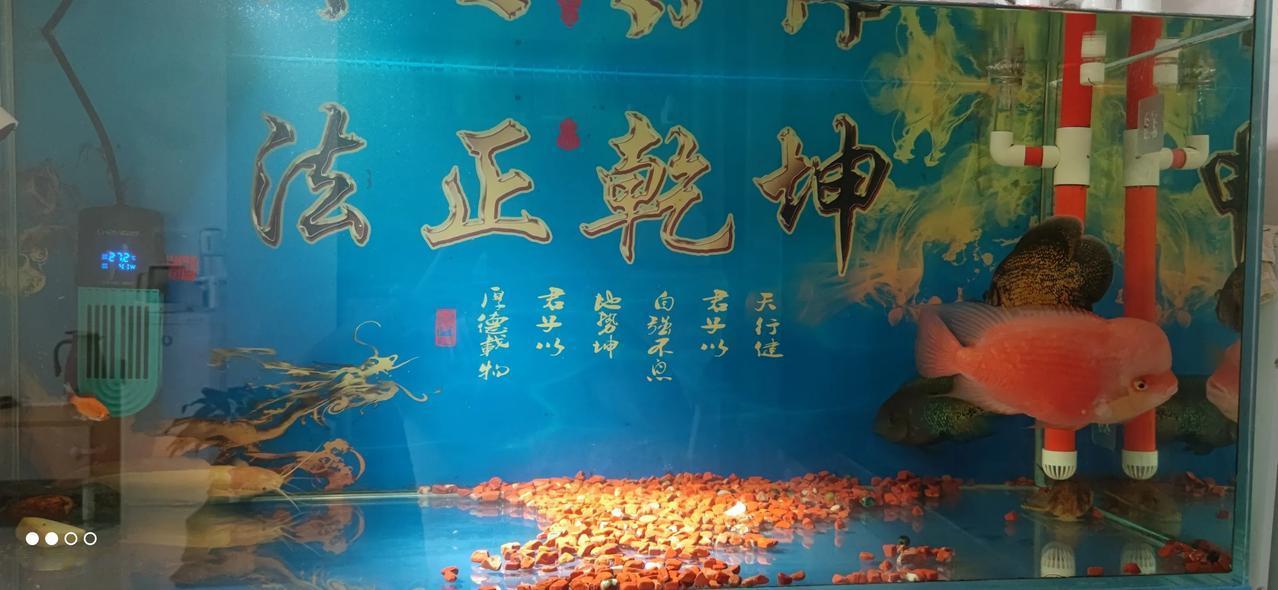 法正乾坤
天行健
君子以
自强不息
地勢坤
君子以
厚德載物
27.2